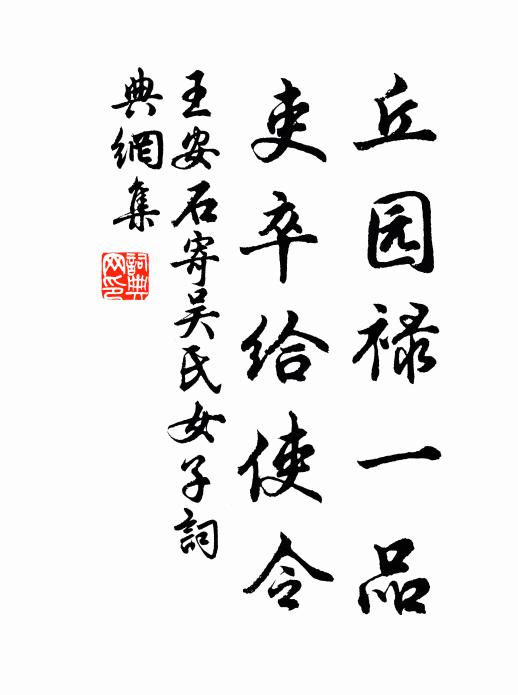 丘园禄一品
吏卒给使令
王安石寄吴氏女子詞
典網集
詞典
网印